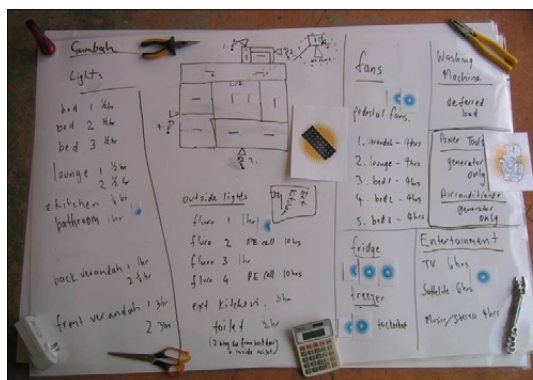 Gumbah
Lights
bed 1 ½hr
bed 2 ½hr
bed 3 ½hr
lounge 1 ½hr
2 ½hr
kitchen
bathroom 1hr
back verandah 1 1hr
2 ½hr
front verandah 1 3hr
2 3hr
outside lights
fluro 1 1hr
fluro 2 PE cell 10hrs
fluro 3 1hr
fluro 4 PE cell 10hrs
ext kitchen 3hr
toilet ½hr
fans
pedestal fans.
1. verandah - 4hrs
2. lounge - 4hrs
3. bed 1 - 4hrs
4. bed 2 - 4hrs
5. bed 3 - 4hrs
fridge
freezer
Washing
Machine
deferred
load
Power Tools
generator
only
Airconditioner
generator
only
Entertainment
TV 6hrs
Satellite 6hrs
Music/Stereo 4hrs